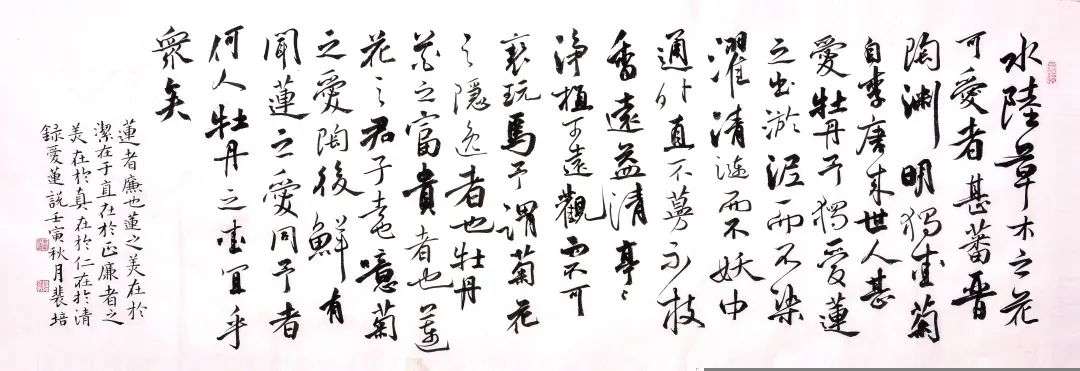 水陸草木之花
可愛者甚蕃晋
陶渊明獨爱菊
自李唐来世人甚
愛牡丹予獨愛蓮
之出淤泥而不染
濯清涟而不妖中
通外直不蔓不枝
香遠益清亭〻
净植可遠觀而不可
褻玩焉予謂菊花
之隱逸者也牡丹
花之富貴者也蓮
花之君子者也噫菊
之愛陶後鮮有
聞蓮之愛同予者
何人牡丹之爱宜乎
衆矣
蓮者廉也蓮之美在於
潔在于直在於正廉者之
美在於真在於仁在於清
録愛蓮説壬寅秋月裴培